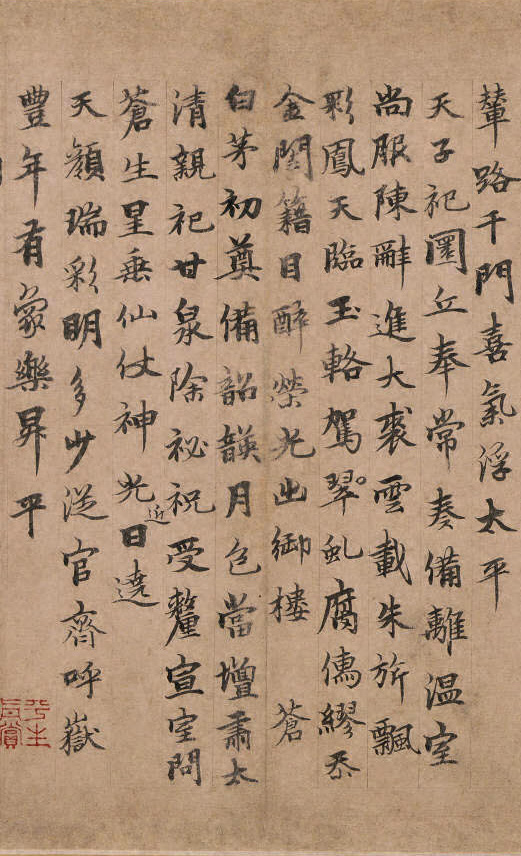 輦路千門喜氣浮太平
天子祀圜丘奉常奏備離溫室
尚服陳辭進大裘雲載朱旂飄
彩鳳天臨玉輅駕翠虬腐儒繆忝
金閨籍目醉榮光出御樓 蒼
白茅初奠備韶韺月色當壇肅太
清親祀甘泉除祕祝受釐宣室問
蒼生星垂仙仗神光近日遶
天顏瑞彩明多少從官齊呼嶽
豐年有象樂昇平
平生
真賞